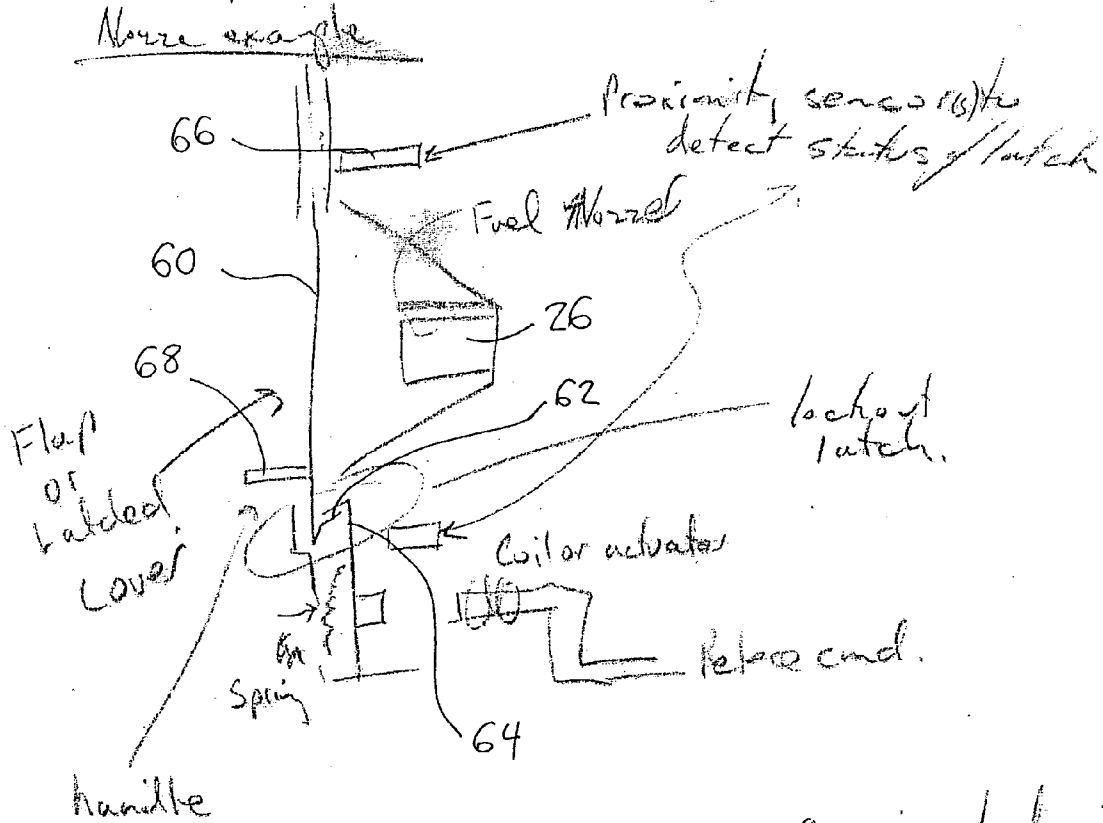 Nozze example
66
Proximity sensor(s) to
detect status of latch
Fuel Nozzel
60
26
68
62
Flap
or
Cover
lockout
latch.
Coil or actuator
Spring
cmd.
64
handle